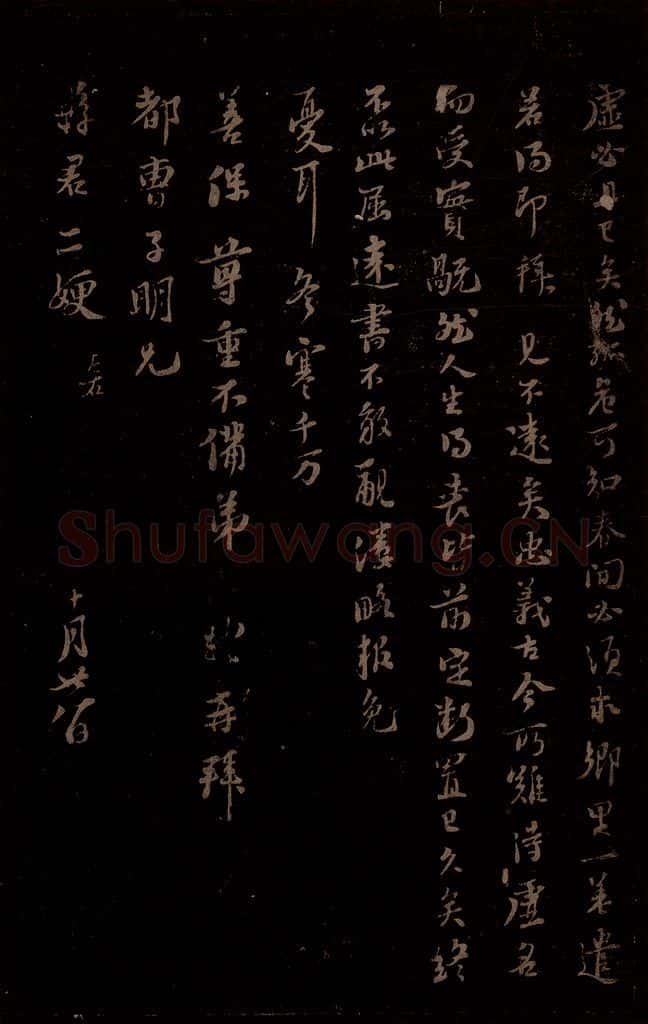 虛必且已矣然孤危可知春間必須求鄉里一差遣
若得即拜見不遠矣忠義古今所難得虛名
而受實禍然人生得喪皆前定斷置已久矣終
不以此屈遠書不敢覼縷略報免
憂耳冬寒千万
善保尊重不備弟軾再拜
都曹子明兄
縣君二嫂左右十月廿八日
Shufawang.CN